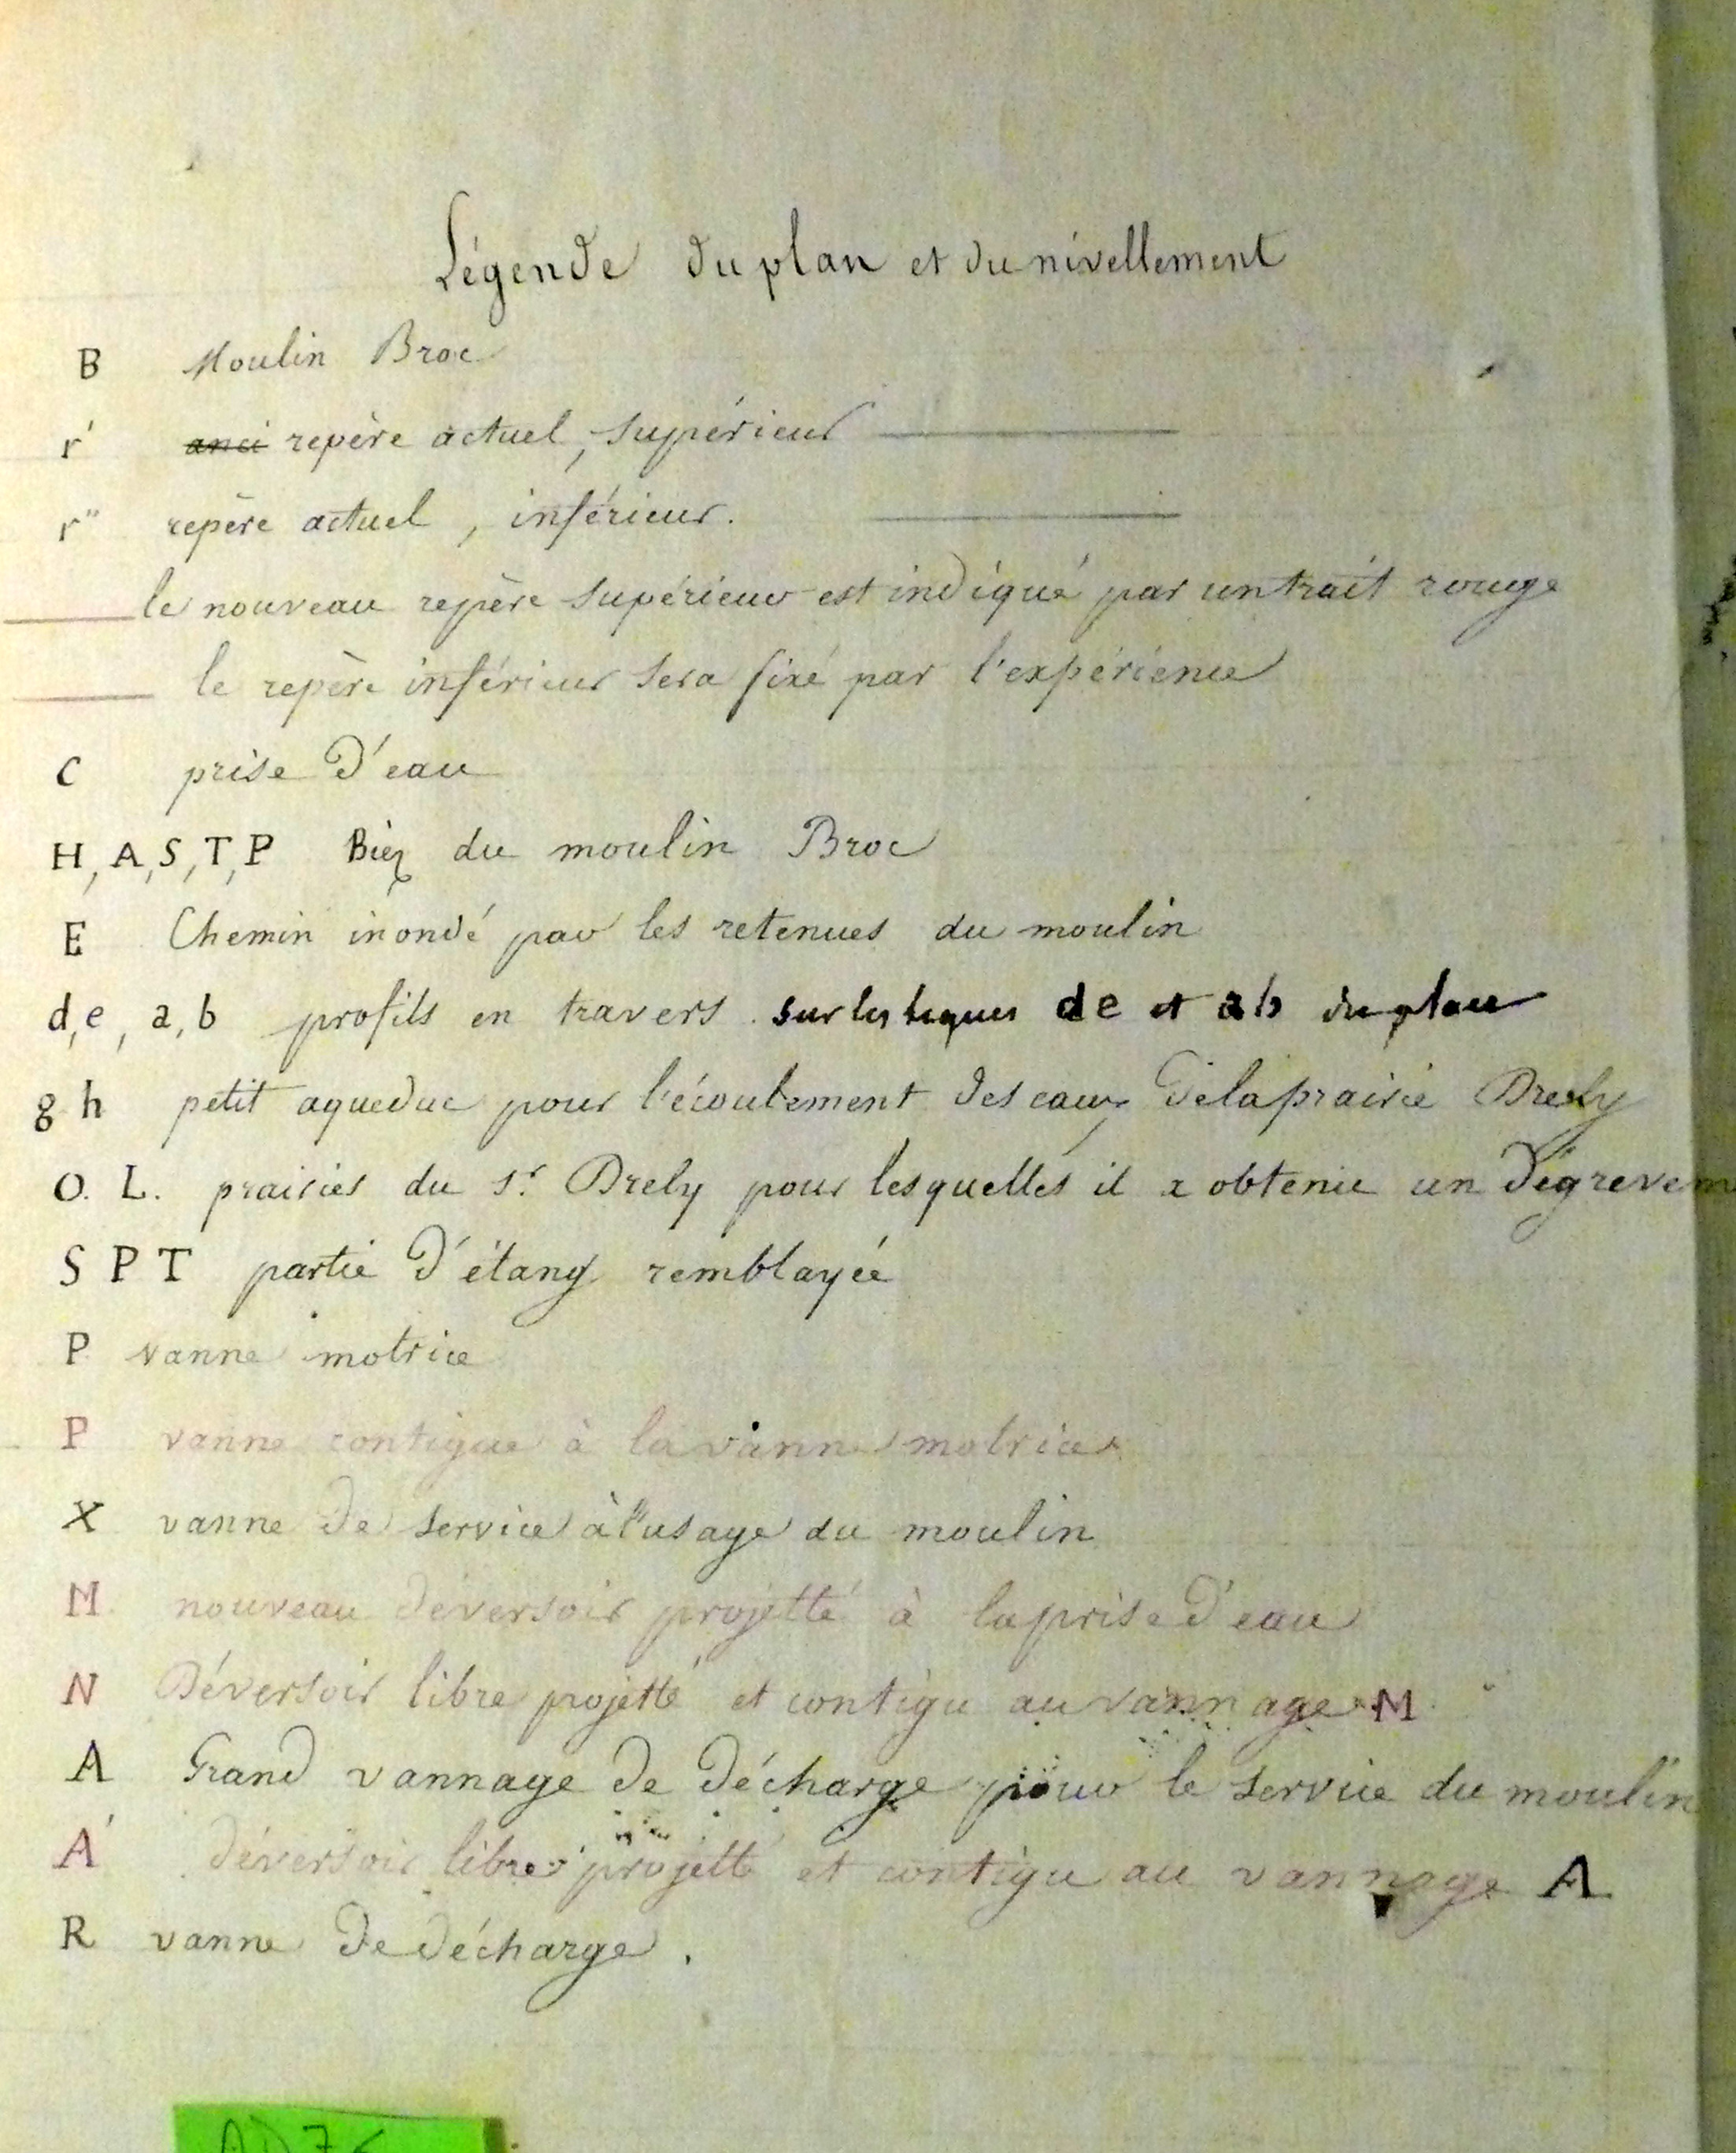 Légende du plan et du nivellement
B Moulin Broc
r' anci repère actuel, supérieur
r" repère actuel, inférieur.
le nouveau repère supérieur est indiqué par un trait rouge
le repère inférieur sera fixé par l'expérience
C prise d'eau
H, A, S, T, P Biez du moulin Broc
E Chemin inondé par les retenues du moulin
d, e, a, b profils en travers sur les lignes de et ab du plan
g h petit aqueduc pour l'écoulement des eaux de la prairie Drely
O. L. prairies du sr. Drely pour lesquelles il a obtenu un dégrevem
S P T partie d'étang remblayée
P vanne motrice
P vanne contigue à la vanne motrice
X vanne de service à l'usage du moulin
M nouveau déversoir projetté à la prise d'eau
N Déversoir libre projetté et contigu au vannage M.
A Grand vannage de décharge pour le service du moulin
A' déversoir libre projetté et contigu au vannage A
R vanne de décharge.